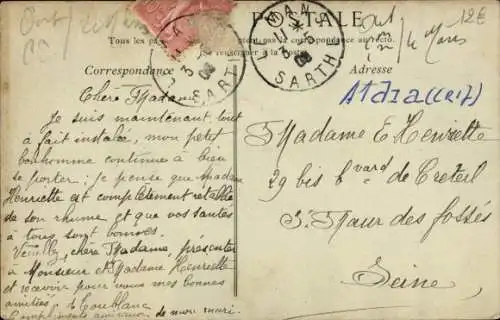 POSTALE
Tous les pays
correspondance au recto.
Correspondance
Adresse
LE MANS
SARTHE
12€
Chère Madame
Je suis maintenant tout
à fait installée, mon petit
bonhomme continue à bien
se porter; je pense que Madame
Henriette est complètement rétablie
de son rhume et que vos santés
à tous sont bonnes.
Veuillez, chère Madame, présenter
à Monsieur et Madame Henriette
et recevoir pour vous mes bonnes
amitiés,
de mon mari.
Madame E Henriette
29 bis bvard de Creteil
St Maur des fossés
Seine